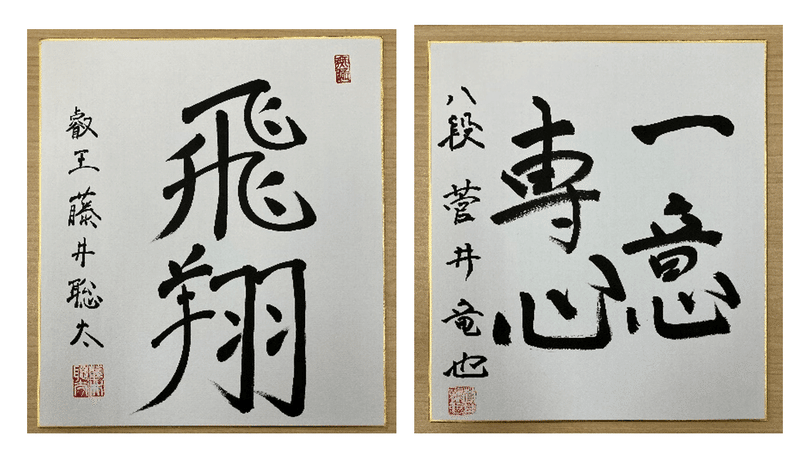 飛翔
叡王 藤井聡太
一意
専心
八段 菅井竜也